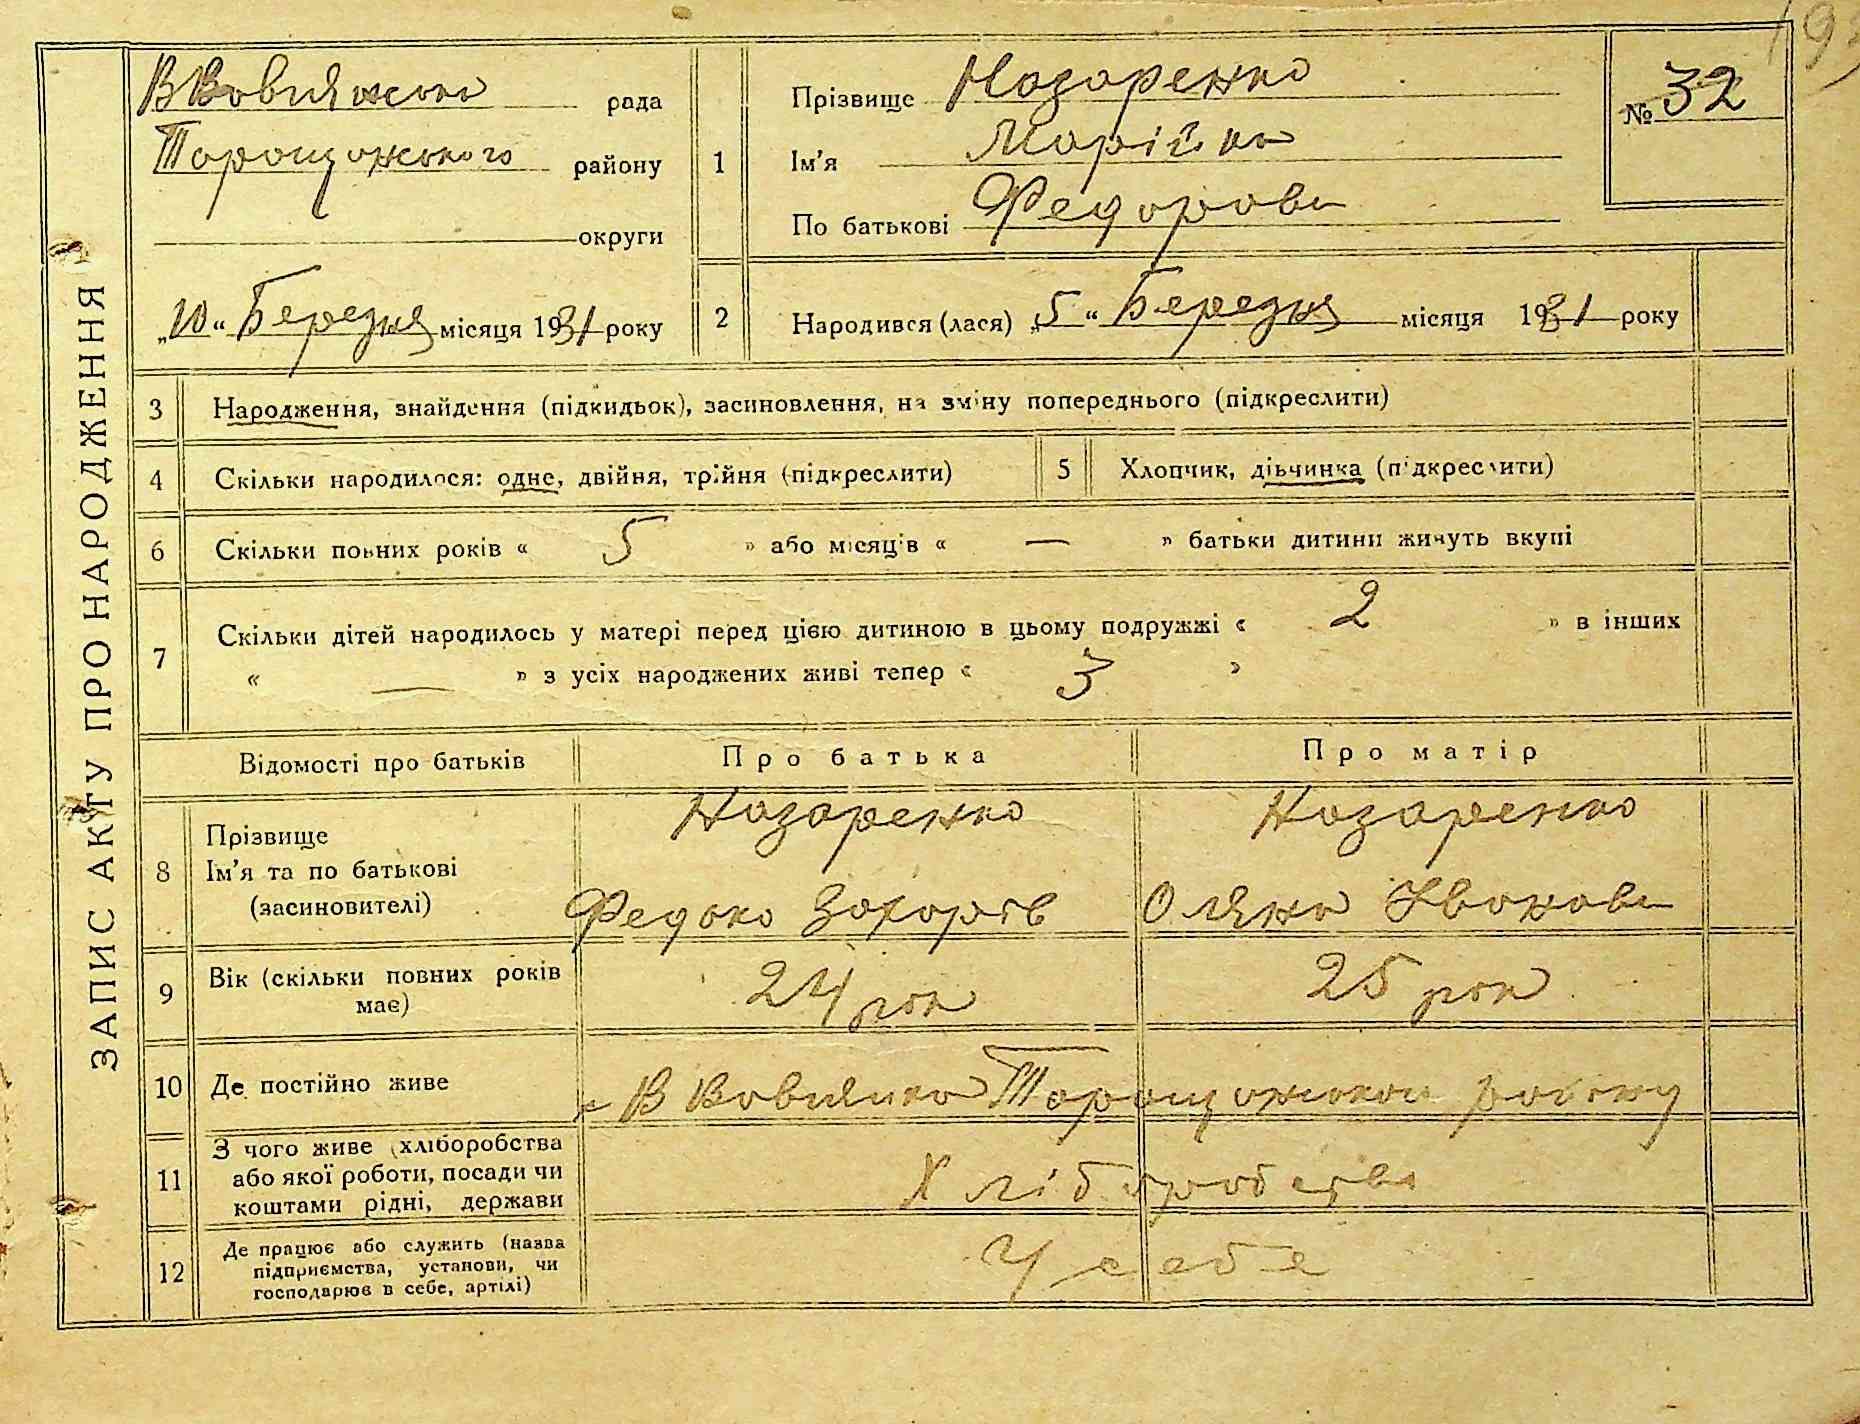 ЗАПИС АКТУ ПРО НАРОДЖЕННЯ
В Вовнянська рада
Таращанського району
округи
„10“ Березня місяця 1931 року
1
Прізвище Назаренко
Ім'я Маріїна
По батькові Федорова
№ 32
2 Народився (лася) „5“ Березня місяця 1931 року
3 Народження, знайдення (підкидьок), засиновлення, на зміну попереднього (підкреслити)
4 Скільки народилося: одне, двійня, трійня (підкреслити)
5 Хлопчик, дівчинка (підкреслити)
6 Скільки повних років « 5 » або місяців « — » батьки дитини живуть вкупі
7 Скільки дітей народилось у матері перед цією дитиною в цьому подружжі « 2 » в інших
« — » з усіх народжених живі тепер « 3 »
Відомості про батьків Про батька Про матір
8 Прізвище
Ім'я та по батькові
(засиновителі)
Назаренко
Захарів
Назаренко
Оляна
9 Вік (скільки повних років
має)
24 рок
25 рок
10 Де постійно живе
11 З чого живе (хліборобства
або якої роботи, посади чи
коштами рідні, держави
Хліборобства
12 Де працює або служить (назва
підприємства, установи, чи
господарює в себе, артілі)
У себе